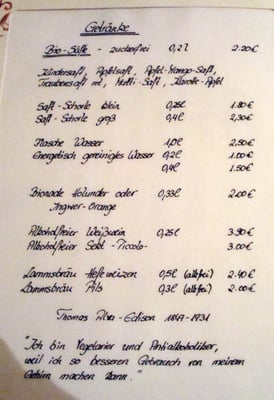 Getränke
Bio-Säfte - zuckerfrei 0,2l 2.20€
Kindersaft, Apfelsaft, Apfel-Mango-Saft,
Traubensaft rot, Multi-Saft, Karotte-Apfel
Saft-Schorle klein 0,25l 1.80€
Saft-Schorle groß 0,4l 2.30€
Flasche Wasser 1,0l 2.50€
Energetisch gereinigtes Wasser 0,2l 1.00€
0,4l 1.50€
Bionade Holunder oder 0,33l 2.00€
Ingwer-Orange
Alkoholfreier Weißwein 0,25l 3.90€
Alkoholfreier Sekt-Piccolo- 3.00€
Lammsbräu Hefeweizen 0,5l (alkfrei) 2.40€
Lammsbräu Pils 0,3l (alkfrei) 2.00€
Thomas Alva-Edison 1847-1931
"Ich bin Vegetarier und Antialkoholiker,
weil ich so besseren Gebrauch von meinem
Gehirn machen kann."